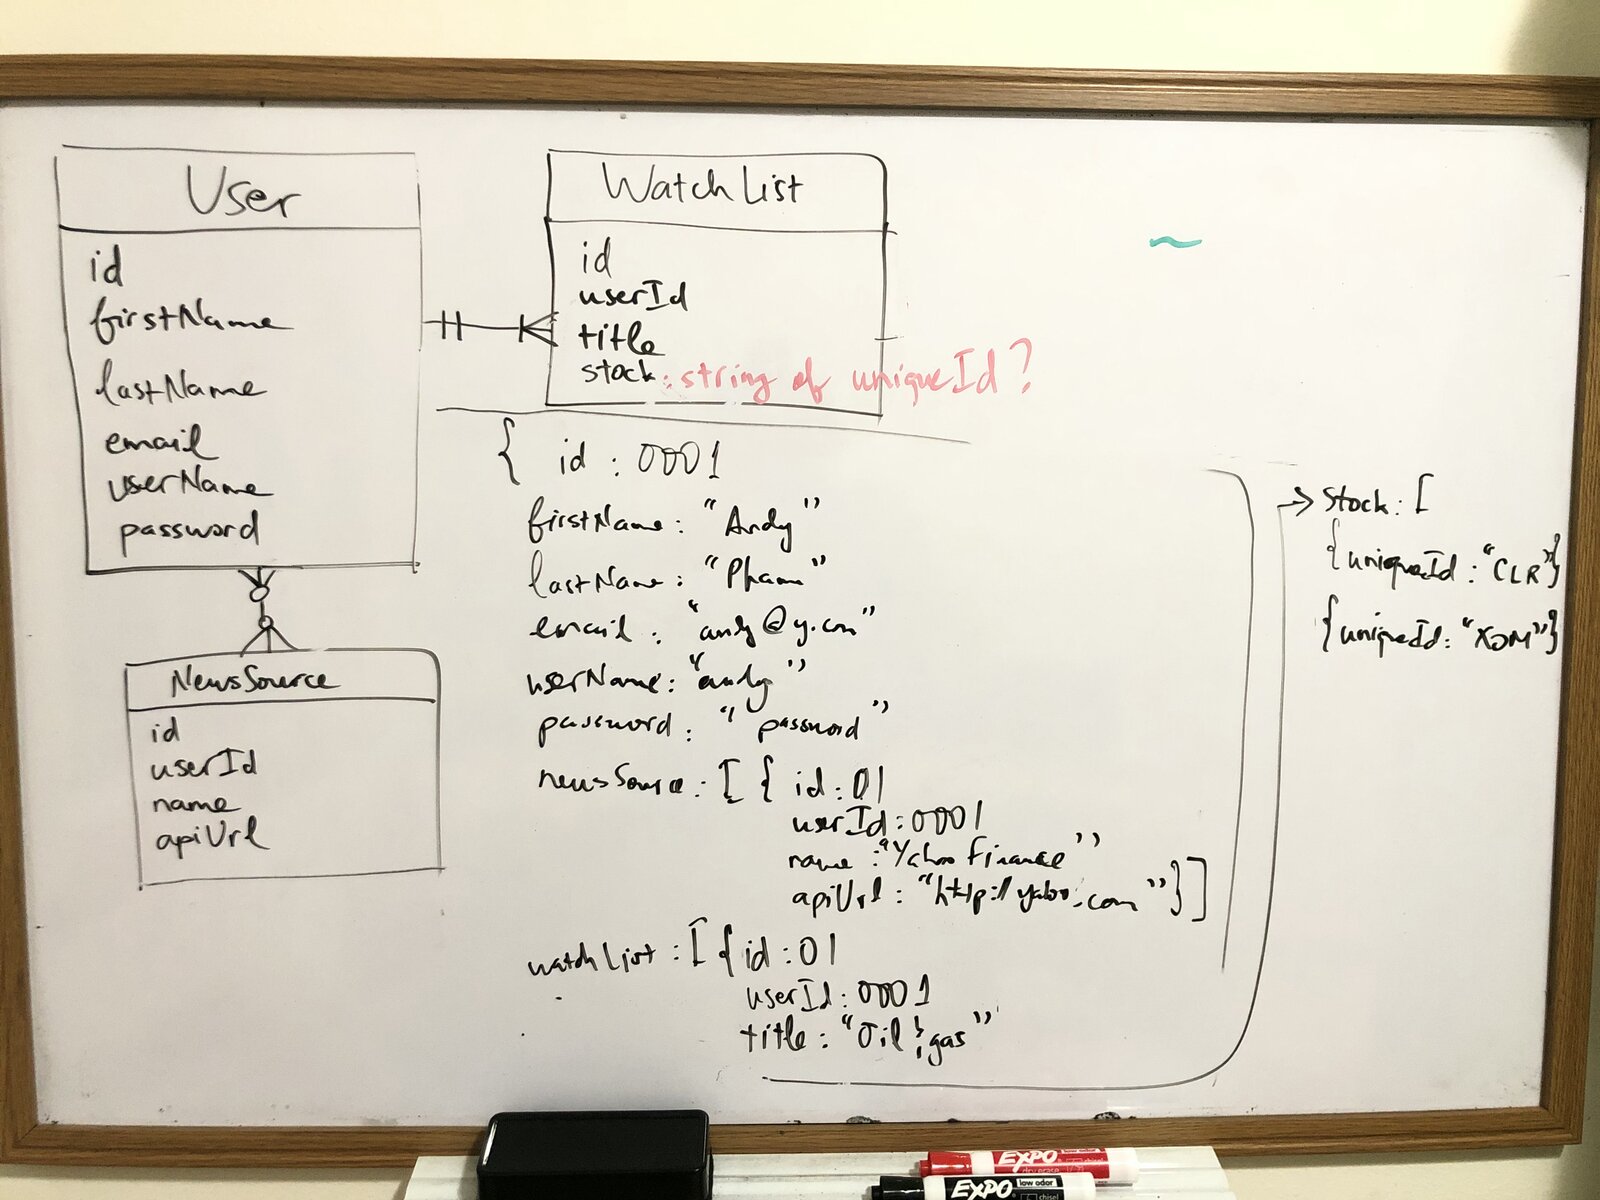 User
id
firstName
lastName
email
userName
password
WatchList
id
userId
title
stock : string of uniqueId?
NewsSource
id
userId
name
apiUrl
{ id : 0001
firstName: "Andy"
lastName: "Pham"
email : "andy@y.com"
userName: "andy"
password : "password"
newsSource : [ { id : 01
userId : 0001
name : "Yahoo Finance"
apiUrl : "http://yahoo.com" } ]
watchList : [ { id : 01
userId : 0001
title : "Oil & gas"
→ Stock : [
{uniqueId : "CLR"}
{uniqueId : "XOM"}
EXPO
low odor
dry erase
EXPO
low odor
chisel